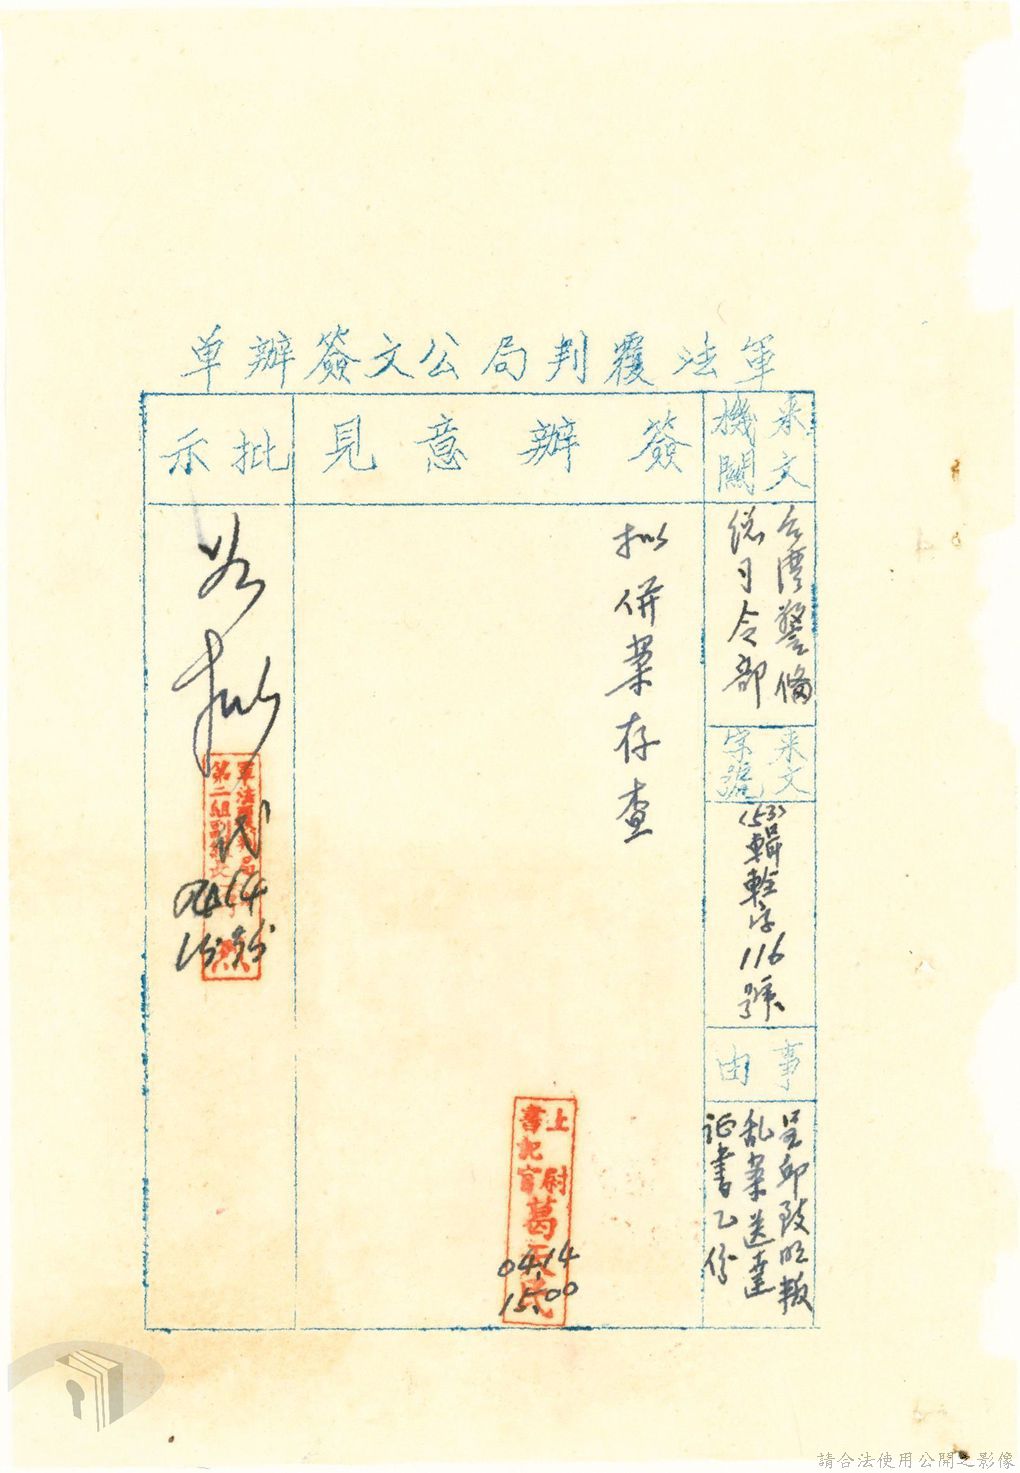 軍法覆判局公文簽辦单
来文機關
台湾警備
總司令部
来文字號
(53)
116
號
事由
呈邱
叛
乱案送達
証書乙份
簽辦意見
拟併案存查
上尉
書記官
葛天民
04.14
15.00
批示
如拟
軍法覆判局
第二組副組長
代
04 14
請合法使用公開之影像